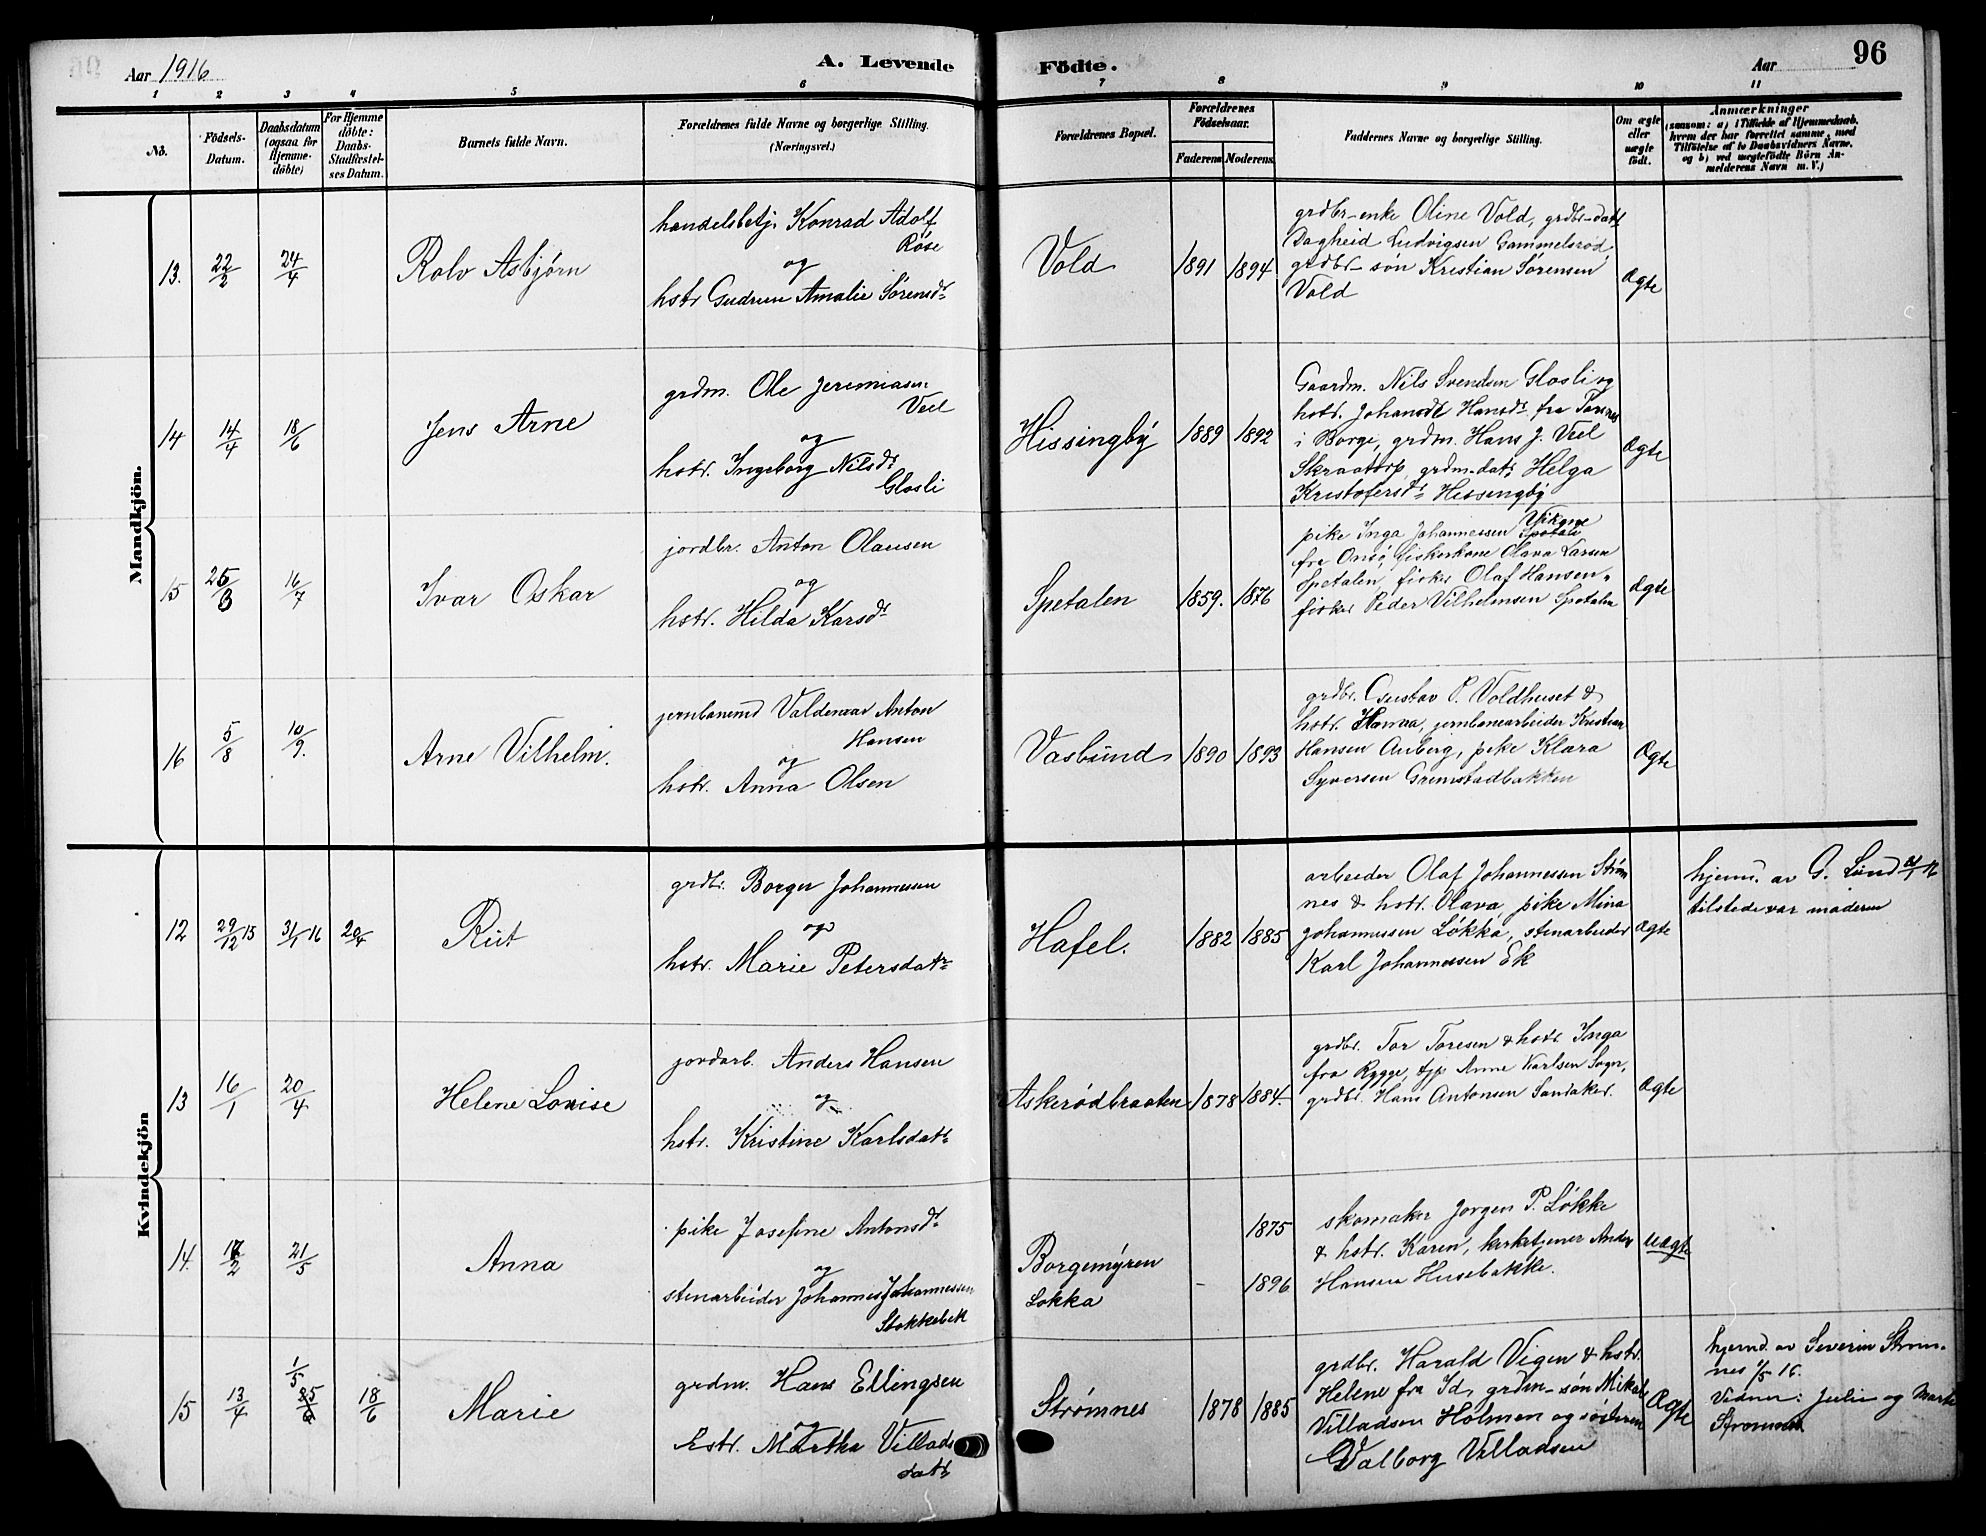 Aar 1916
A. Levende
Födte.
Aar
96
1 2 3 4 5 6 7 8 9 10 11
No.
Födsels-
Datum.
Daabsdatum
(ogsaa for
Hjemme-
döbte)
For Hjemme
döbte:
Daabs-
Stadfæstel-
ses Datum.
Barnets fulde Navn.
Forældrenes fulde Navne og borgerlige Stilling.
(Næringsvei.)
Forældrenes Bopæl.
Forældrenes
Födselsaar.
Faderens
Moderens
Faddernes Navne og borgerlige Stilling.
Om ægte
eller
uægte
født.
Anmærkninger
(saasom: a) i Tilfælde af Hjemmedaab,
hvem der har forrettet samme, med
Tilföielse af to Daabsvidners Navne,
og b) ved uægtefödte Börn An-
melderens Navn m. V.)
Mandkjön.
13. 22/2 24/4
Rolv Asbjørn
handelsbetj. Konrad Adolf
Röse
og
hstr Gudrun Amalie Sörensdr
Vold
1891 1894
grdbr-enke Oline Vold, grdbr-datt
Dagheid Ludvigsen Gammelsröd
grdbr-sön Kristian Sörensen
Vold
Ægte
14 14/4 18/6
Jens Arne
grdm. Ole Jeremiasen
Veel
og
hstr. Ingeborg Nilsdr
Glosli
Hissingby
1889 1892
Gaardm. Nils Svendsen Glosli og
hstr. Hansdr fra Torsnes
i Borge, grdm. Hans J. Veel
Skraatorp grdm-datr Helga
Kristofersdr Hissingby
Ægte
15 25/3 16/7
Ivar Oskar
jordbr. Anton Olausen
og
hstr. Hilda Karsdr
Spetalen
1859. 1876
pike Inga Johannessen Vikane
fra Onsö, fiskerkone Olava Larsen
Spetalen, fisker Olaf Hansen "
fisker Peder Vilhelmsen Spetalen
Ægte
16 5/8 10/9.
Arne Vilhelm.
jernbanemd Valdemar Anton
Hansen
og
hstr. Anna Olsen
Vasbund
1890 1893
grdbr. Gustav P. Voldhuset &
hstr. Hanna, jernbanearbeider Kristian
Hansen Auberg, pike Klara
Syversen Grimstadbakken
Ægte
Kvindekjön
12 29/12 15 31/1 16 20/4
Rut
grdbr. Borger Johannessen
og
hstr. Marie Petersdatr
Hafel.
1882 1885
arbeider Olaf Johannessen Ström
nes & hstr. Olava pike Mina
Johannessen Løkka, stenarbeider
Karl Johannessen Ek
Ægte
hjemd. av G. Lund 31/1 16
tilstede var moderen
13 16/1 20/4
Helene Lovise
jordarb. Anders Hansen
og
hstr. Kristine Karlsdatr
Askerødbraaten
1878 1884.
grdbr. Tor Toresen & hstr Inga
fra Rygge, tjp Anne Karlsen Sogn,
grdbr. Hans Antonsen Sandaker.
Ægte
14. 2 21/5
Anna
pike Josefine Antonsdr
og
stenarbeider Johannes Johannessen
Stokkebek
Borgemyren
Løkka
1875
- 1896
skomaker Jørgen P. Løkke
& hstr. Karen, kirketjener Anders
Hansen Husebakke.
Uægte
15 13/4 1/5 25/6 18/6
Marie
grdm. Hans Ellingsen
og
hstr. Martha Villads
datr
Strømnes
1878 1885
grdbr. Harald Vigen & hstr.
Helene fra Id, grdm-søn Mikal
Villadsen Holmen og søsteren
Valborg Villadsen
Ægte
hjemd. av Severin Strøm-
nes 1/5 16.
Vidner: Julie og Marte
Strømnes